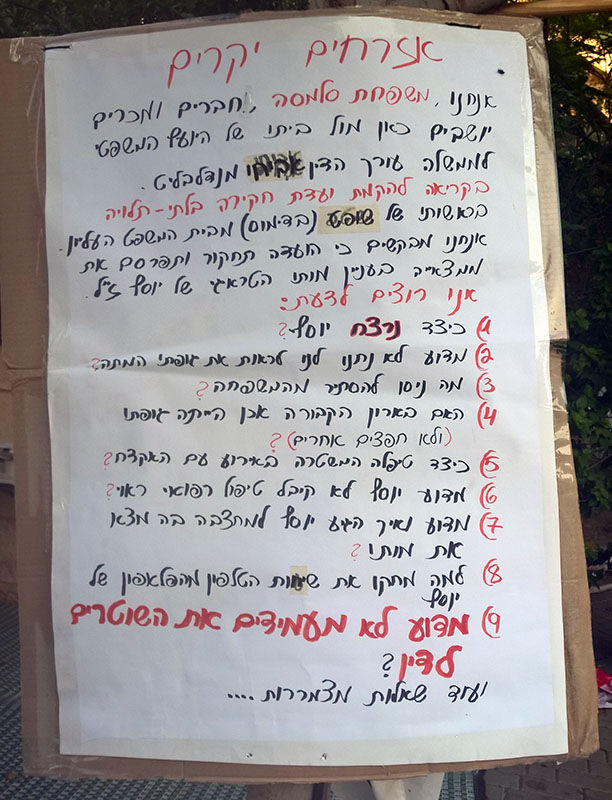 אזרחים יקרים
אנחנו, משפחת סלמסה, חברים ומכרים
יושבים כאן מול ביתו של היועץ המשפטי
לממשלה עורך הדין אביחי מנדלבליט.
בקריאה להקמת ועדת חקירה בלתי-תלויה
בראשותו של שופט (בדימוס) מבית המשפט העליון.
אנחנו מבקשים כי הועדה תחקור ותפרסם את
ממצאייה בעניין מותו הטראגי של יוסף ז"ל.
אנו רוצים לדעת:
1) כיצד נרצח יוסף?
2) מדוע לא נתנו לנו לראות את גופתו המתה?
3) מה ניסו להסתיר מהמשפחה?
4) האם בארון הקבורה אכן הייתה גופתו
(ולא חפצים אחרים)?
5) כיצד טיפלה המשטרה באירוע עם האקדח?
6) מדוע יוסף לא קיבל טיפול רפואי ראוי?
7) מדוע ואיך הגיע יוסף למחצבה בה מצאו
את מותו?
8) למה מחקו את שיחות הטלפון מהפלאפון של
יוסף
9) מדוע לא מעמידים את השוטרים
לדין?
ועוד שאלות מצמררות....